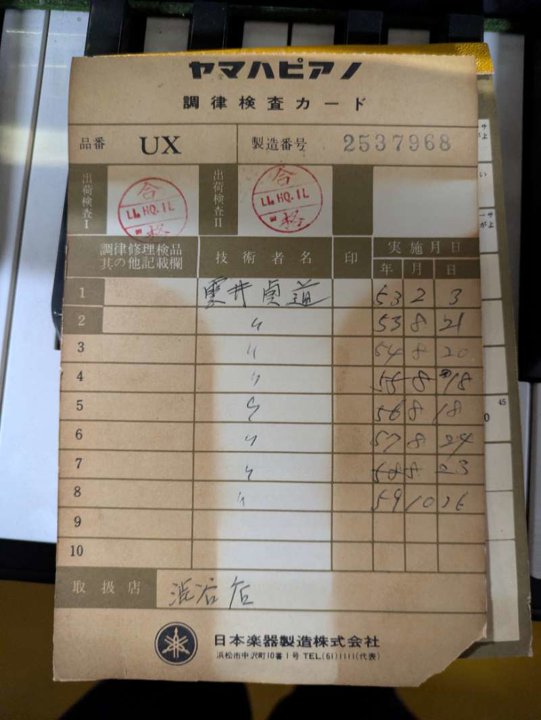 ヤマハピアノ
調律検査カード
品番 UX 製造番号 2537968
出荷検査I 合格 出荷検査II 合格
調律修理検品其の他記載欄 技術者名 印 実施月日
年 月 日
1 雲井貞道 53 2 3
2 〃 53 8 21
3 〃 54 8 20
4 〃 55 8 18
5 〃 56 8 18
6 〃 57 8 24
7 〃 58 8 23
8 〃 59 10 26
9
10
取扱店 渋谷店
日本楽器製造株式会社
浜松市中沢町10番1号 TEL(61)1111(代表)
45